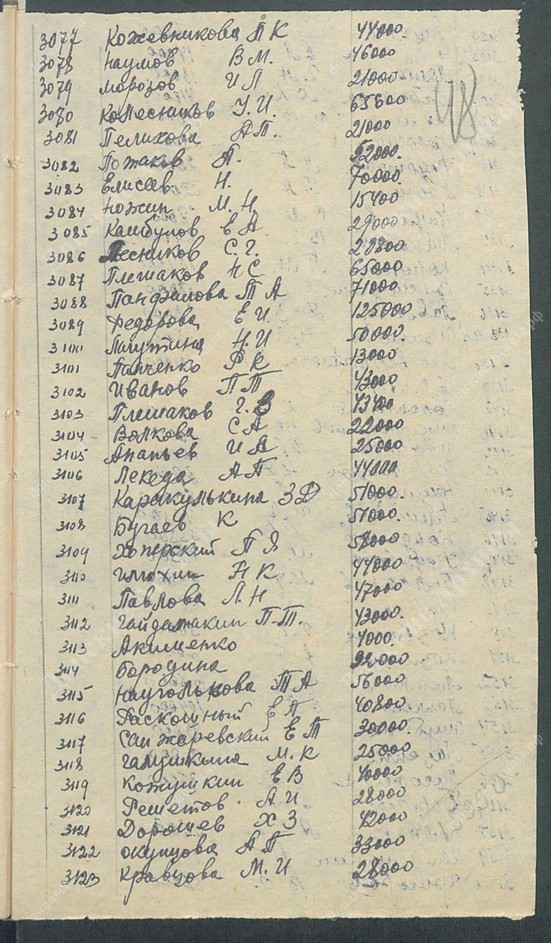 3077 Кожевникова П К 44000.
3078 Наумов В М. 46000
3079 Морозов И Л 21000
3080 Колесников У. И. 65600
3081 Пеликова А П. 21000
3082 А. 52000.
3083 Елисеев Н. 70000.
3084 Ножин М. Н 15400
3085 Е А 29000
3086 Лесников С. Г.
3087 Плешаков Н С 65000
3088 Панфилова Т А 71000.
3089 Федорова Е И 125000.
3100 Лагутина Н. И 50000.
3101 Панченко Р К 13000
3102 Иванов П П 43000
3103 Плешаков Г. В 43400
3104 Волкова С А 22000
3105 Ананьев И А 25000
3106 Лекеда А П 44000
3107 Каракулькина З Д 51000.
3108 Бугаев К 51000.
3109 Хоперский П Я 58000
3110 Илюхин Н К 44000
3111 Павлова Л Н 47000
3112 Гайдамакин П. Т. 43000.
3113 Акименко 4000.
3114 Бородина 92000
3115 Наугольнова Т А 56000
3116 Раскошный Е П 40800
3117 Санжаревский Е Т 30000.
3118 Галушкина М. К 25000
3119 Кожушкин Е В 40000
3120 Решетов А И 28000
3121 Дорошев Х З 42000
3122 Окунцова А П 33000
3123 Кравцова М. И 28000
48